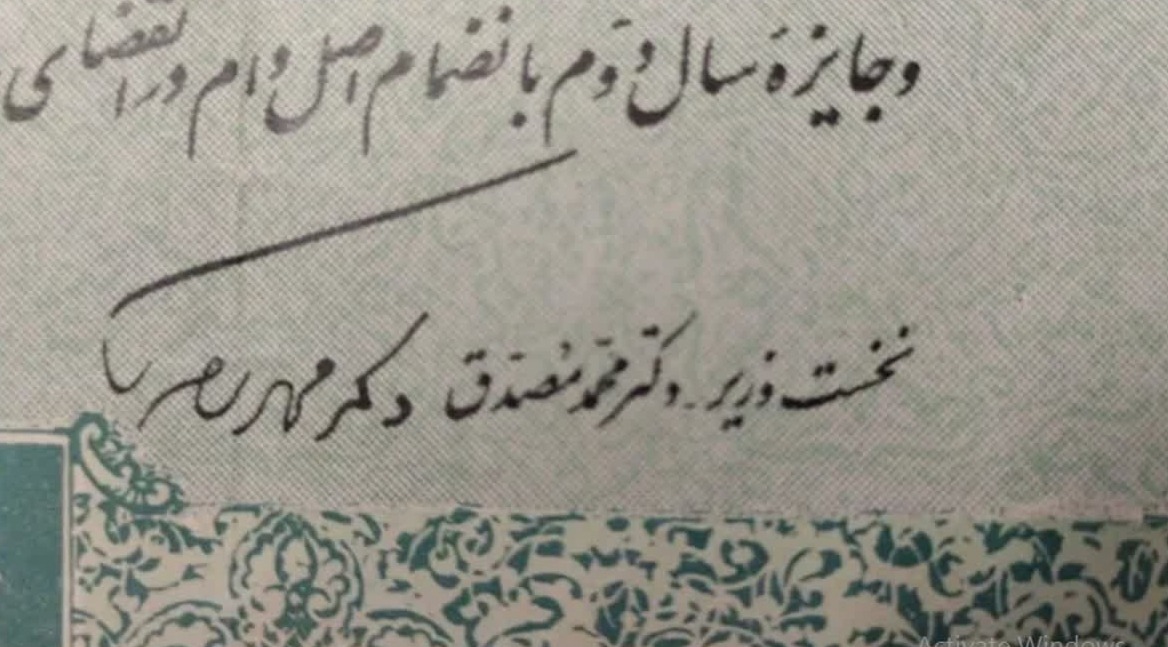 وجایزۀ سال دوّم بانضمام اصل وام در انقضای
نخست وزیر - دکتر محمّد مصدّق
Activate Windows